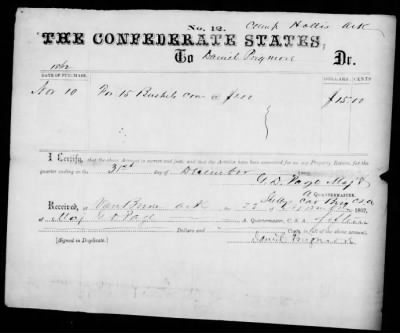 No. 12. Camp Hollis Ark
THE CONFEDERATE STATES,
To Daniel Pugmore Dr.
1862
DATE OF PURCHASE. DOLLARS CENTS
Nov 10 For 15 Bushels corn @ $1.00 $15.00
I Certify, that the above Account is correct and just; and that the Articles have been accounted for on my Property Return for the
quarter ending on the 31st day of December
G. D. Page Maj &
A QUARTERMASTER.
Received, at Van Buren Ark 1862,
of Maj G D Page A Quartermaster, C.S.A. fifteen
Dollars and Cents, in full of the above account.
[Signed in Duplicate.] Daniel